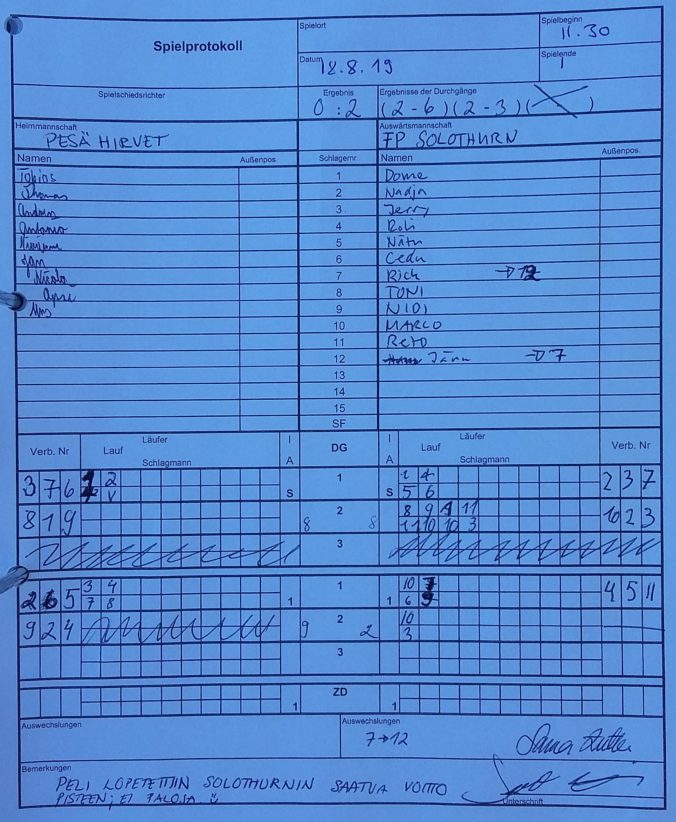 Spielprotokoll
Spielort
Spielbeginn
11.30
Datum
12.8.19
Spielende
Spielschiedsrichter
Ergebnis
0:2
Ergebnisse der Durchgänge
(2-6)(2-3)( )
Heimmannschaft
PESÄ HIRVET
Auswärtsmannschaft
FP SOLOTHURN
Namen Außenpos. Schlagernr. Namen Außenpos.
Tobias 1 Dome
Thomas 2 Nadja
Andreas 3 Jerry
Antonio 4 Robi
5 Nätu
Jan 6 Cedu
Nicola 7 Rich
8 TONI
9 NIDI
10 MARCO
11 Reto
12 →7
13
14
15
SF
Verb. Nr Lauf Läufer Schlagmann I A DG I A Lauf Läufer Schlagmann Verb. Nr
3 7 6 2 S 1 S 1 4 2 3 7
5 6
8 1 9 8 2 8 8 9 11 10 2 3
11 10 10 3
3
5 3 4 1 1 1 10 4 5 11
7 8 6
9 2 4 9 2 2 10
3
3
1 ZD 1
Auswechslungen
Auswechslungen
7→12
Bemerkungen
PELI LOPETETTIIN SOLOTHURNIN SAATUA VOITTO
PISTEEN; EI PALOJA
Unterschrift